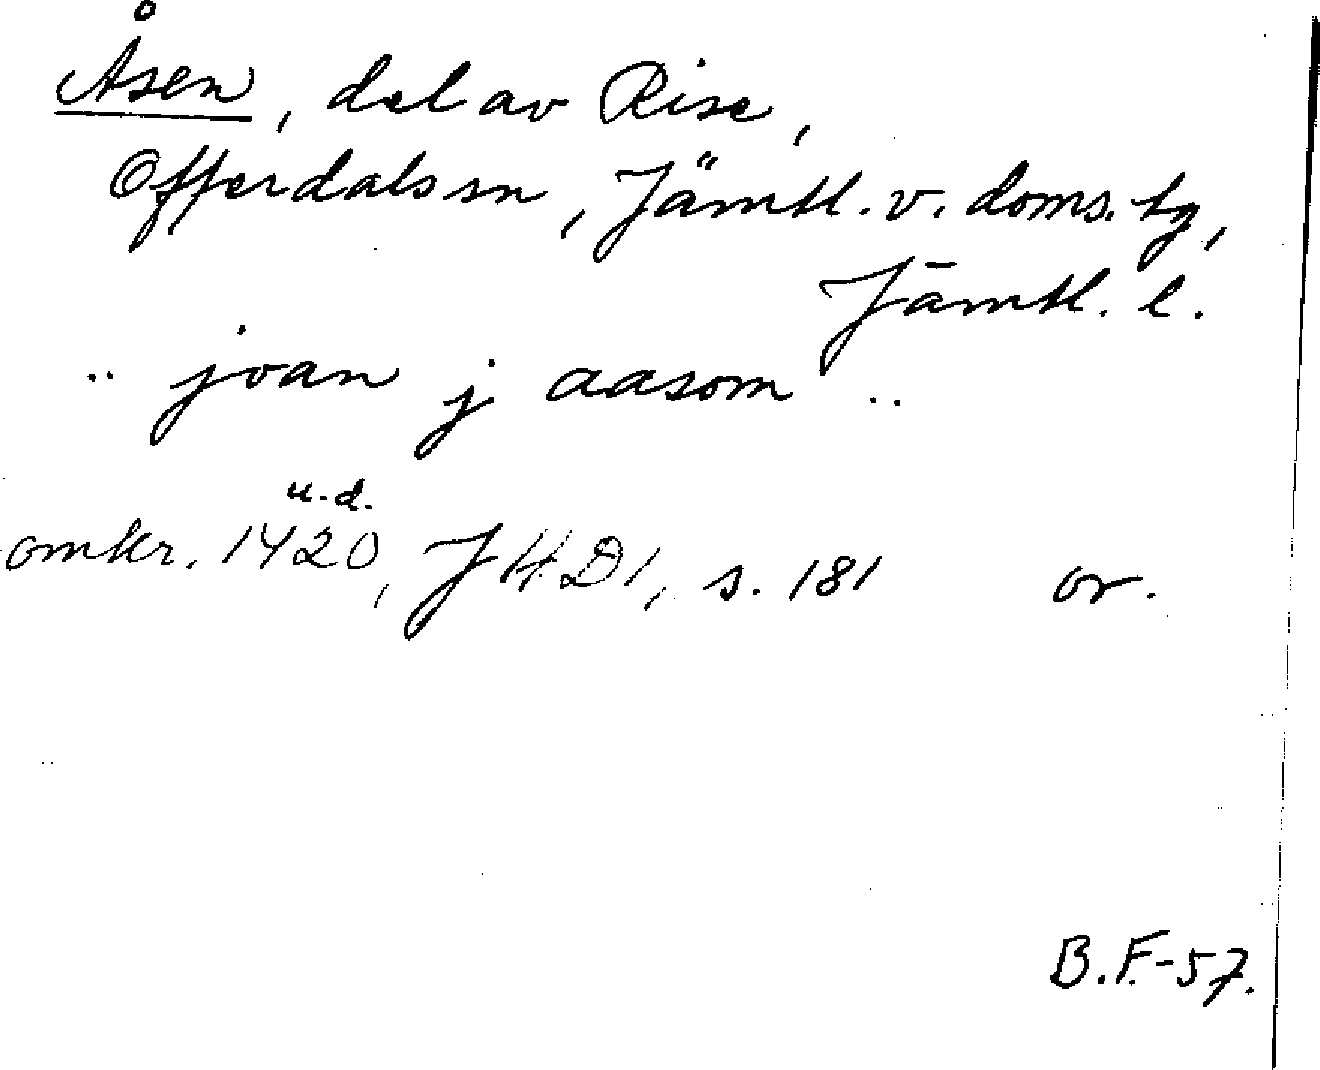 Åsen, del av Rise,
Offerdals sn, Jämtl. v. doms. tg,
Jämtl. l.
.. joan j aasom ..
u.d.
omkr. 1420, JHD1, s. 181 or.
B.F.-57.